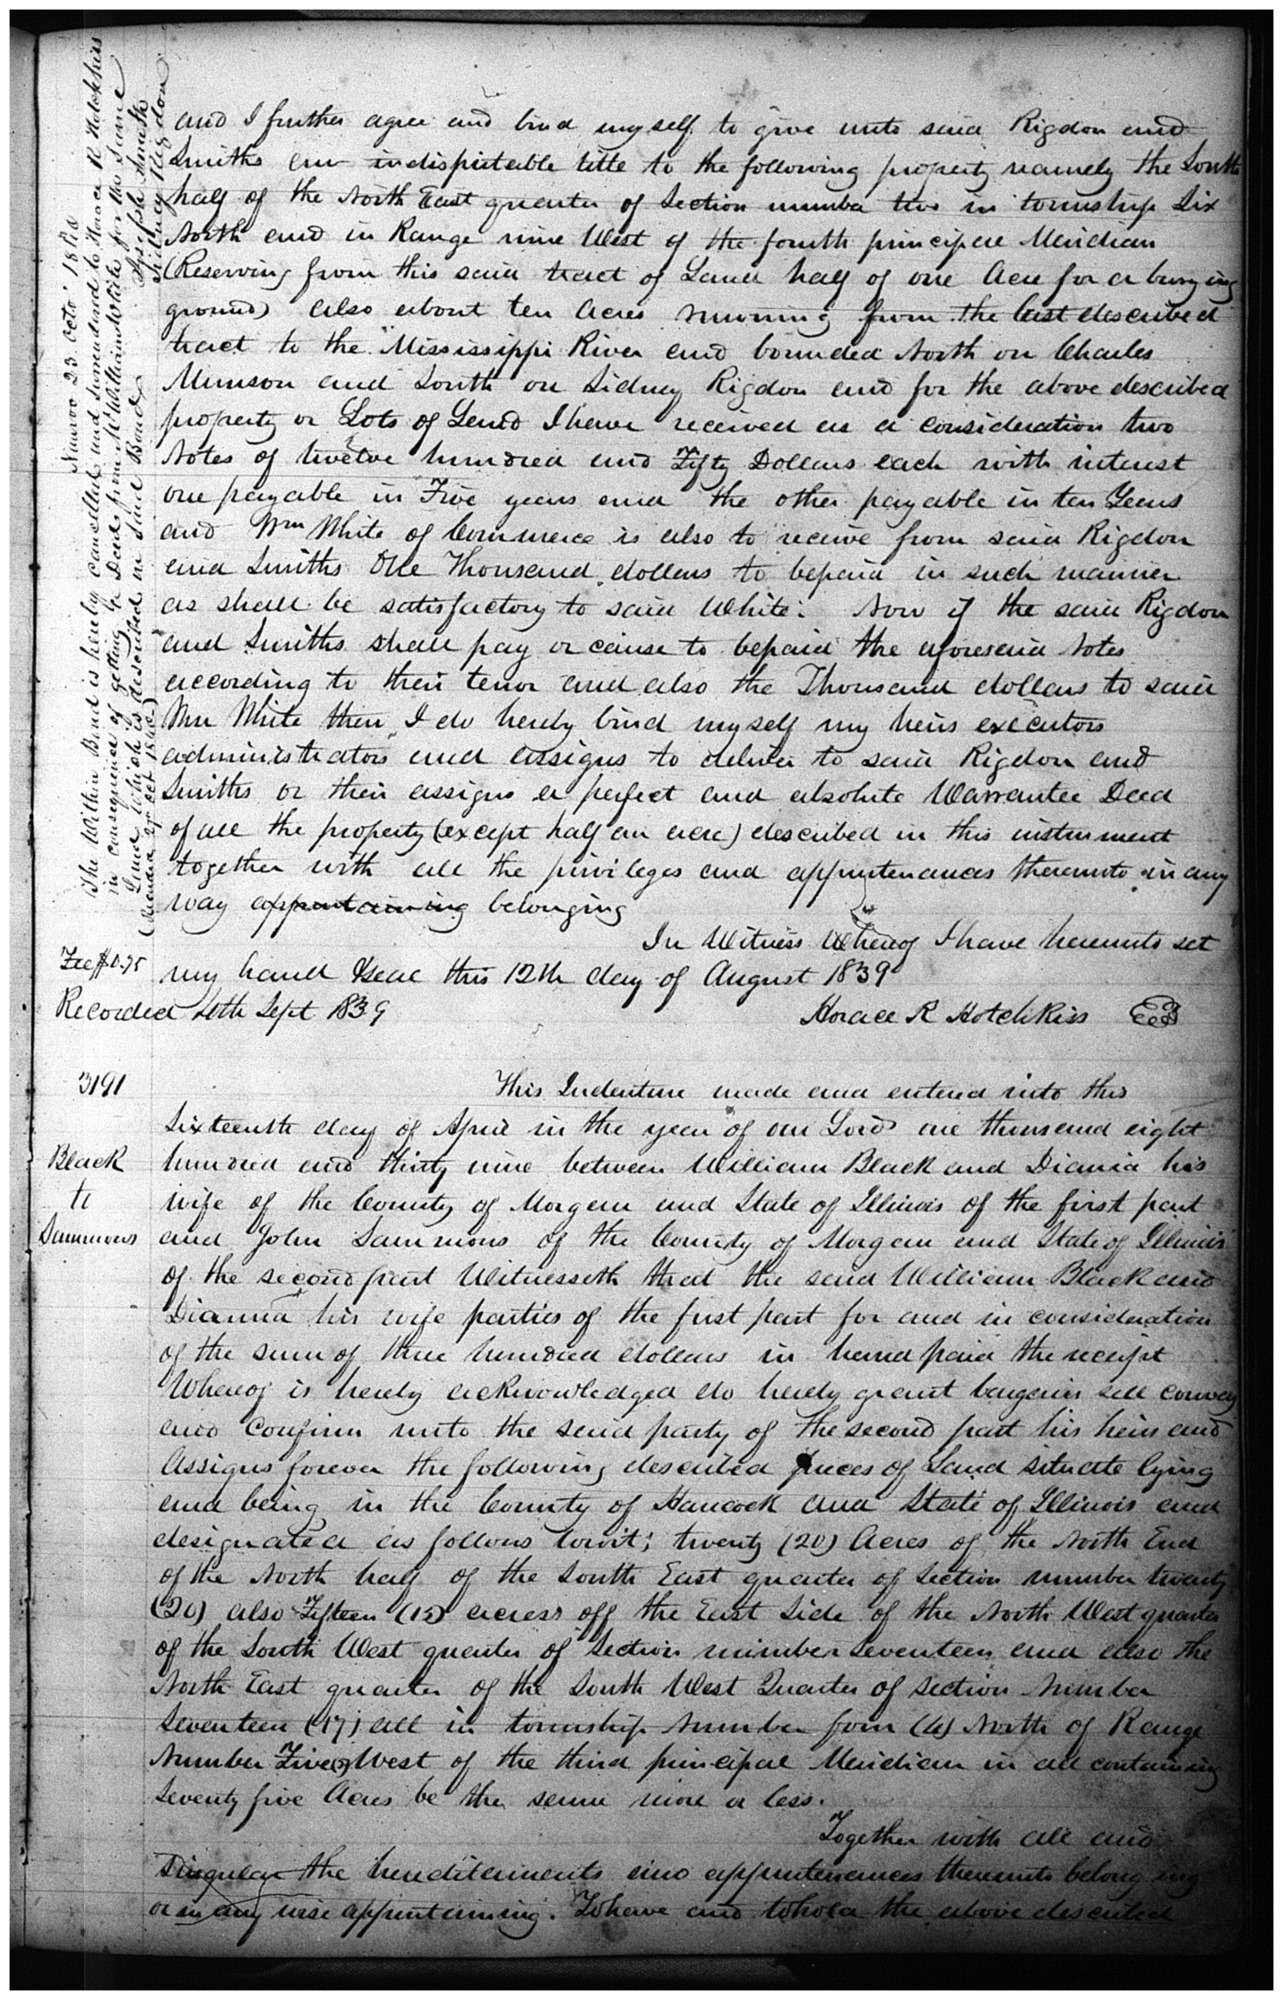 Nauvoo 23 Octo' 1840
The within Bond is hereby cancelled and surrendered to Horace R Hotchkiss
in consequence of getting a Deed from Mr William White for the same
Land which is described in said Bond
Joseph Smith
Sidney Rigdon
and I further agree and bind myself to give unto said Rigdon and
Smiths an indisputable title to the following property namely the South
half of the North East quarter of Section number two in township Six
North and in Range nine West of the fourth principal Meridian
(Reserving from this said tract of Land half of one Acre for a burying
ground) also about ten Acres running from the last described
tract to the Mississippi River and bounded North on Charles
Munson and South on Sidney Rigdon and for the above described
property or Lots of Land I have received as a consideration two
Notes of twelve hundred and Fifty Dollars each with interest
one payable in Five years and the other payable in ten Years
and Wm White of Commerce is also to receive from said Rigdon
and Smiths One Thousand dollars to be paid in such manner
as shall be satisfactory to said White. Now if the said Rigdon
and Smiths shall pay or cause to be paid the aforesaid Notes
according to their tenor and also the Thousand dollars to said
Wm White then I do hereby bind myself my heirs executors
administrators and assigns to deliver to said Rigdon and
Smiths or their assigns a perfect and absolute Warrantee Deed
of all the property (except half an acre) described in this instrument
together with all the privileges and appurtenances thereunto in any
way appertaining belonging
In Witness Whereof I have hereunto set
Fee $0.75
my hand & seal this 12th day of August 1839
Recorded 10th Sept 1839
Horace R Hotchkiss Seal
3191
This Indenture made and entered into this
Sixteenth day of April in the year of our Lord one thousand eight
Black
to
Sammons
hundred and thirty nine between William Black and Diania his
wife of the County of Morgan and State of Illinois of the first part
and John Sammons of the County of Morgan and State of Illinois
of the second part Witnesseth that the said William Black and
Dianna his wife parties of the first part for and in consideration
of the sum of three hundred dollars in hand paid the receipt
Whereof is hereby acknowledged do hereby grant bargain sell convey
and confirm unto the said party of the second part his heirs and
Assigns forever the following described pieces of Land situate lying
and being in the County of Hancock and State of Illinois and
designated as follows towit; twenty (20) Acres of the North End
of the North half of the South East quarter of Section number twenty
(20) also Fifteen (15) acres off the East Side of the North West quarter
of the South West quarter of Section number seventeen and also the
North East quarter of the South West Quarter of Section Number
Seventeen (17) all in township Number four (4) North of Range
Number Five (5) West of the third principal Meridian in all containing
Seventy five Acres be the same more or less.
Together with all and
Singular the hereditaments and appurtenances thereunto belonging
or in any wise appertaining. To have and to hold the above described